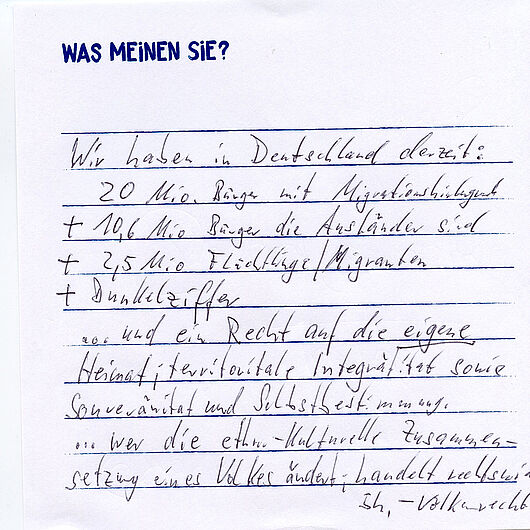 WAS MEINEN SIE?
Wir haben in Deutschland derzeit:
20 Mio. Bürger mit Migrationshintergrund
+ 10,6 Mio Bürger die Ausländer sind
+ 2,5 Mio Flüchtlinge/Migranten
+ Dunkelziffer
... und ein Recht auf die eigene
Heimat, territoritale Integrätität sowie
Souveränität und Selbstbestimmung.
... wer die ethn.-kulturelle Zusammen-
setzung eines Volkes ändert, handelt rechtswid
-Völkerrecht